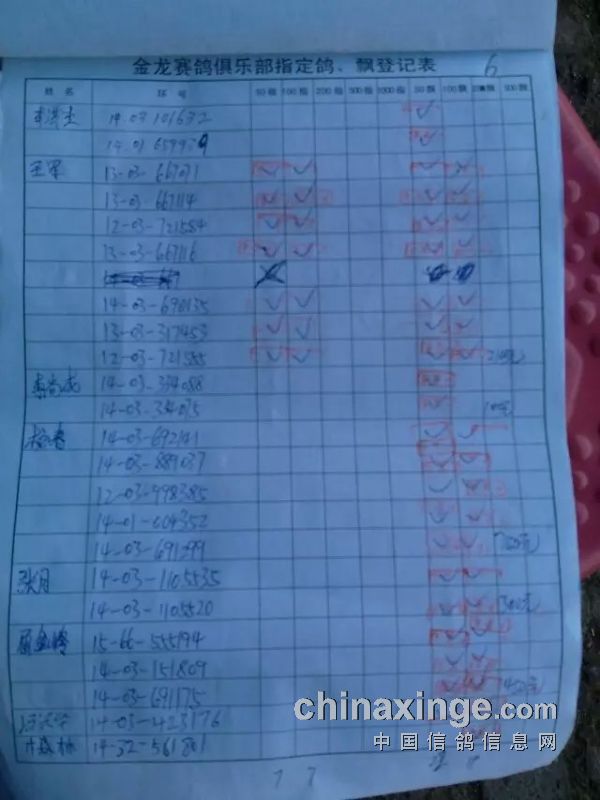 金龙赛鸽俱乐部指定鸽、飘登记表
6
姓名 环号 50指 100指 200指 500指 1000指 50飘 100飘 200飘 500飘
14-03 101632
王军 13-03-667071
13-03-667114
12-03-721584
13-03-667116
14-03-690135
13-03-317453
12-03-721585
14-03-334088
14-03-334075 100元
14-03-692141
14-03-889037
12-03-998385
14-01-004352
14-03-691399
张月 14-03-1105535
14-03-1105520 300元
15-66-555194
14-03-151809
14-03-691175 450元
14-03-423176
14-32-561801
chinaxinge.com
中国信鸽信息网